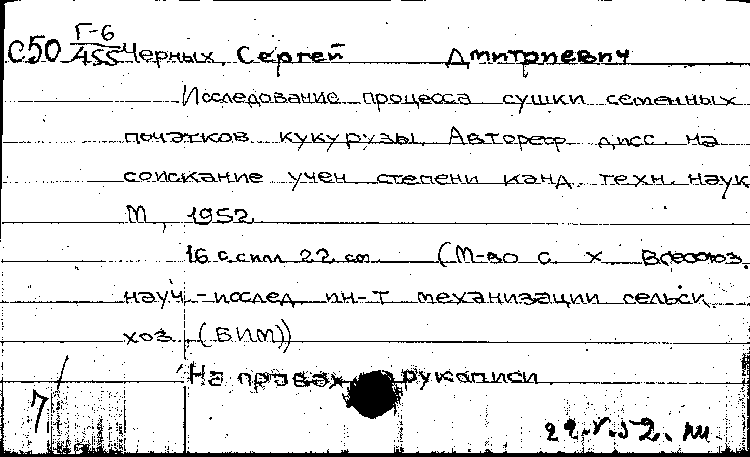 Г-6
С50 455 Черных, Сергей Дмитриевич
Исследование процесса сушки семенных
початков кукурузы. Автореф дисс. на
соискание учен степени канд. техн. наук
М., 1952
16 с. с илл. 22 см (М-во с. х Всесоюз.
науч.-исслед. ин-т механизации сельск
хоз. (ВИМ))
На правах рукописи.
7